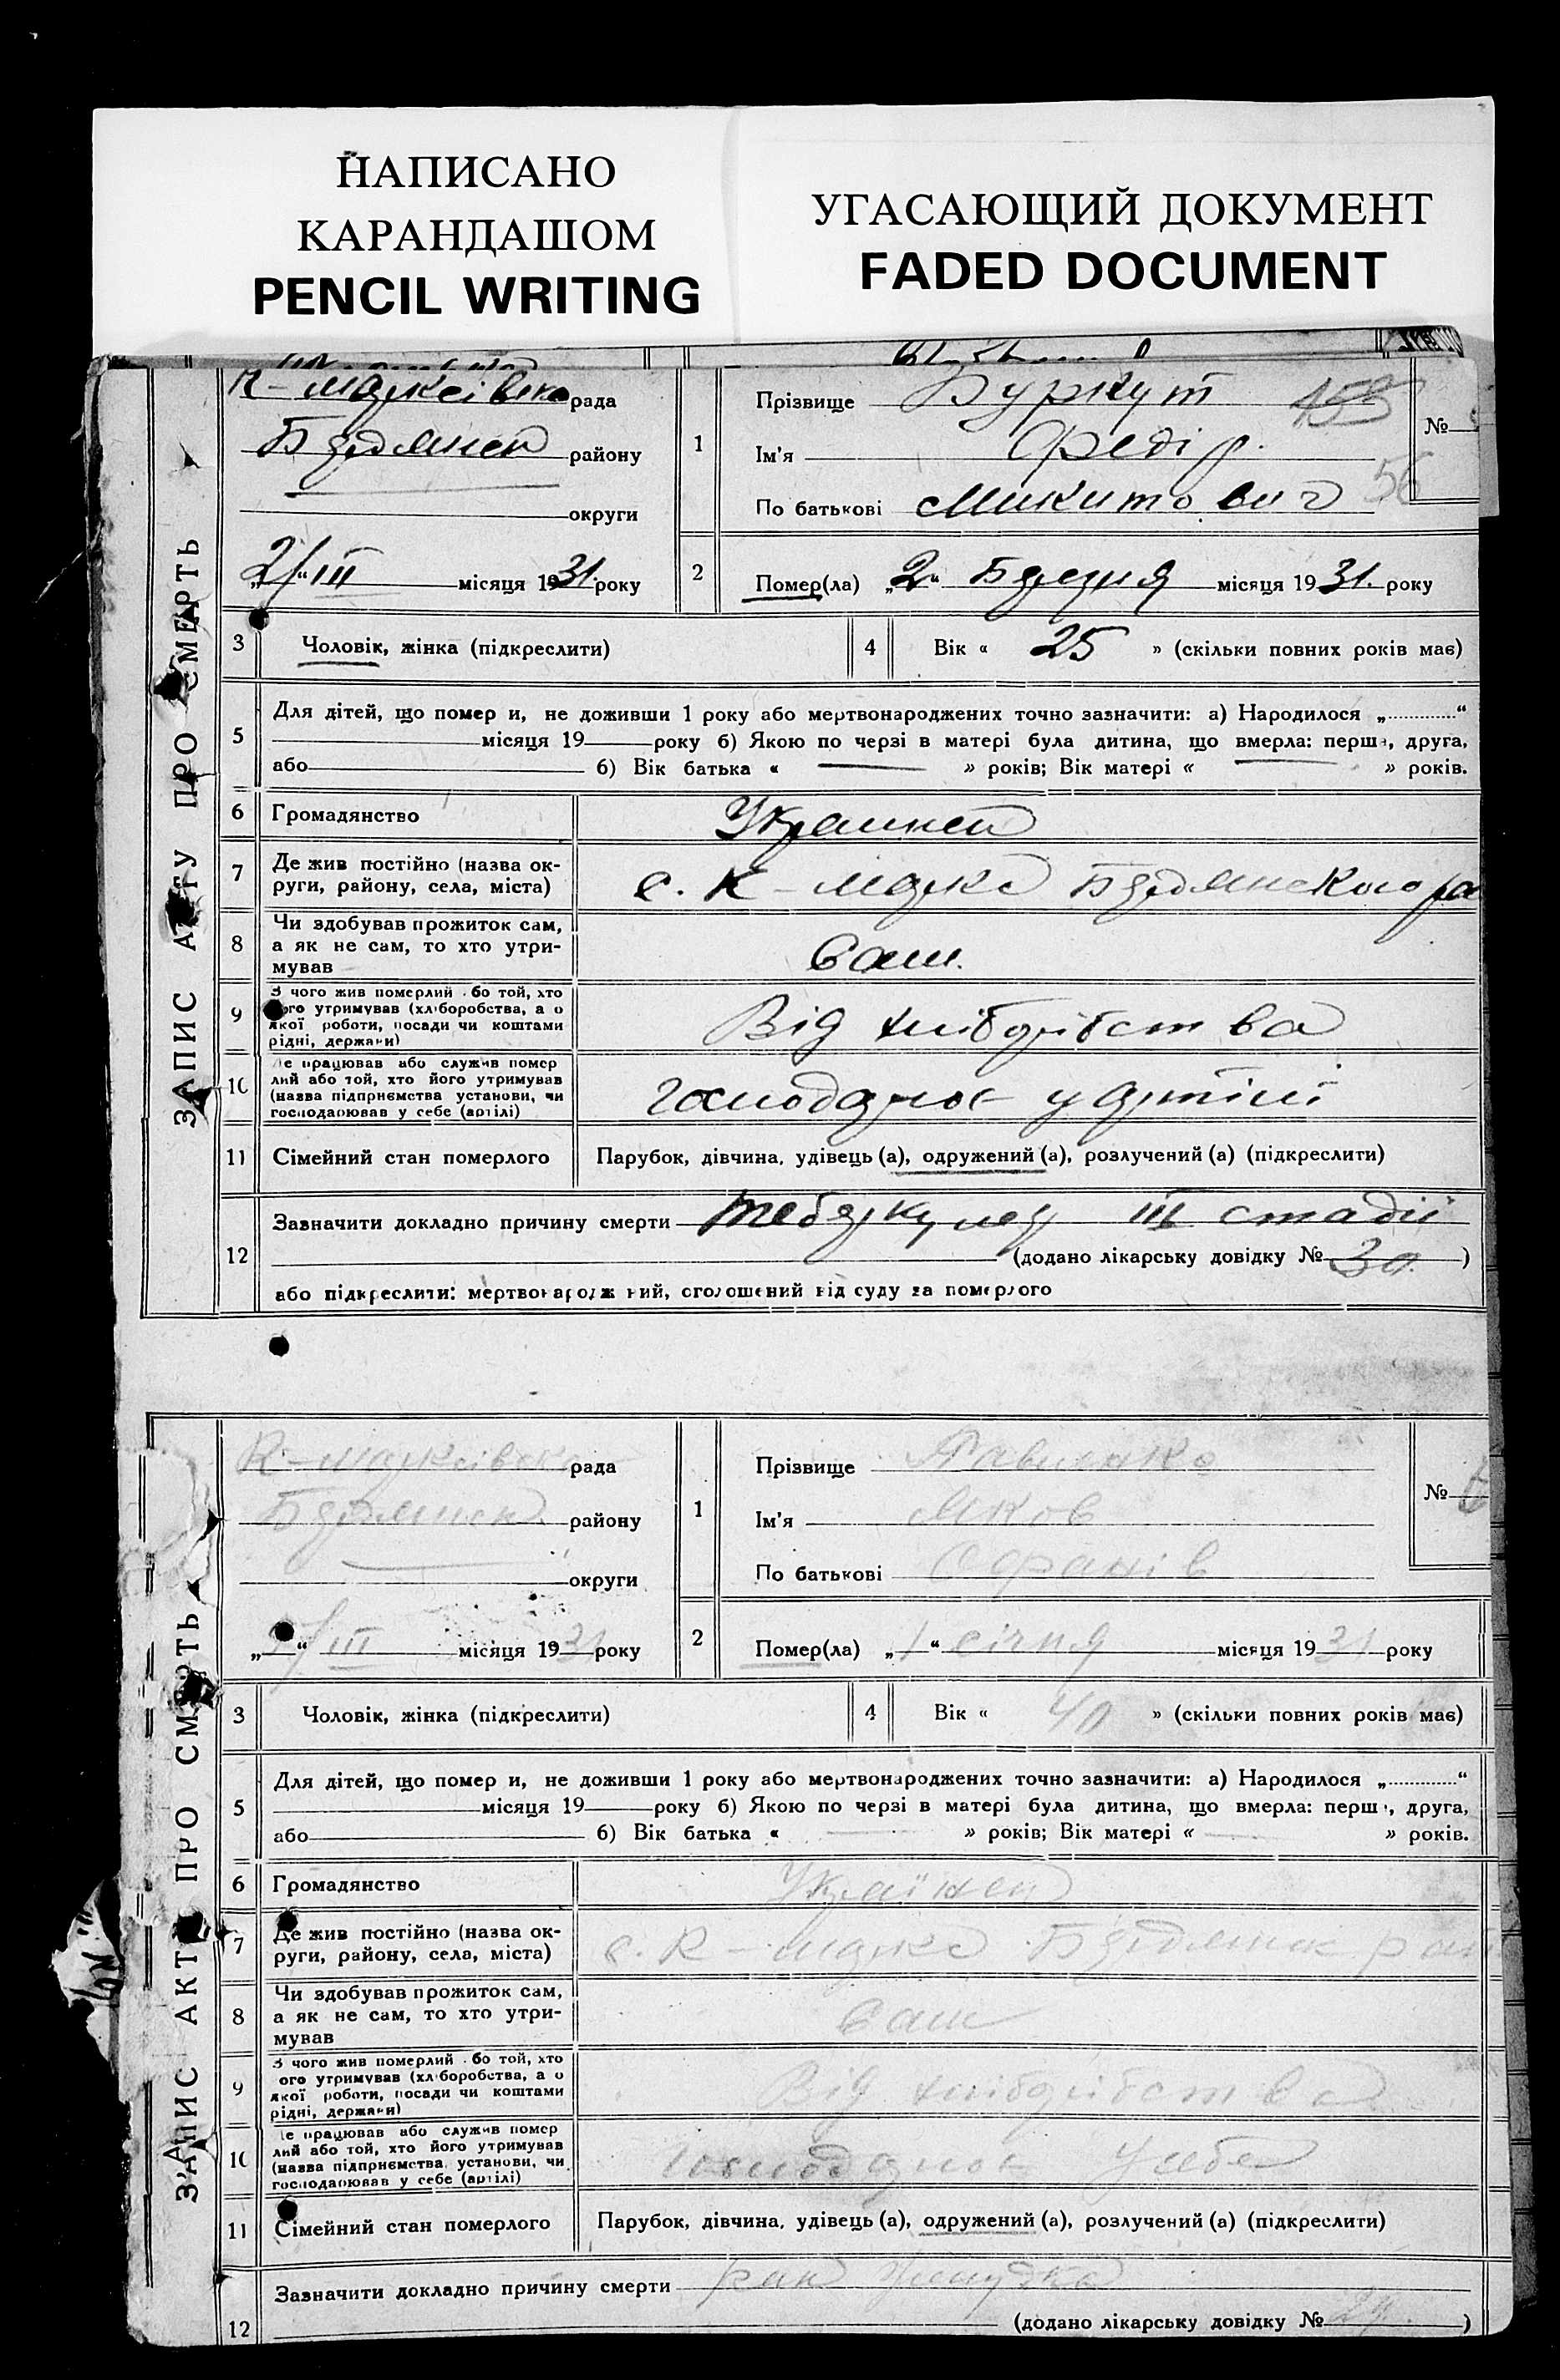 НАПИСАНО
КАРАНДАШОМ
PENCIL WRITING
УГАСАЮЩИЙ ДОКУМЕНТ
FADED DOCUMENT
ЗАПИС АКТУ ПРО СМЕРТЬ
рада
району
округи
2/III місяця 1931 року
1
Прізвище Буркут 153
Ім'я Федір
По батькові Микитович 56
№
2
Помер(ла) „2“ Березня місяця 1931. року
3 Чоловік, жінка (підкреслити)
4 Вік « 25 » (скільки повних років має)
5 Для дітей, що помер и, не доживши 1 року або мертвонароджених точно зазначити: а) Народилося „ “
місяця 19 року б) Якою по черзі в матері була дитина, що вмерла: перша, друга,
або б) Вік батька « — » років; Вік матері « — » років.
6 Громадянство Украинец
7 Де жив постійно (назва ок-
руги, району, села, міста)
с. К-Маркс Бердянского ра
8 Чи здобував прожиток сам,
а як не сам, то хто утри-
мував
Сам.
9 З чого жив померлий або той, хто
його утримував (хліборобства, а о
якої роботи, посади чи коштами
рідні, держави)
Від хліборобства
10 Де працював або служив помер
лий або той, хто його утримував
(назва підприємства установи, чи
господарював у себе (артілі)
господарює у артілі
11 Сімейний стан померлого Парубок, дівчина, удівець (а), одружений (а), розлучений (а) (підкреслити)
12 Зазначити докладно причину смерти Теберкулез III стадії
(додано лікарську довідку № 30)
або підкреслити: мертвонароджений, оголошений від суду за померлого
ЗАПИС АКТУ ПРО СМЕРТЬ
рада
району
округи
2/III місяця 1931 року
1
Прізвище Павленко
Ім'я Яков
По батькові
№ 6
2
Помер(ла) „1“ січня місяця 1931 року
3 Чоловік, жінка (підкреслити)
4 Вік « 40 » (скільки повних років має)
5 Для дітей, що помер и, не доживши 1 року або мертвонароджених точно зазначити: а) Народилося „ “
місяця 19 року б) Якою по черзі в матері була дитина, що вмерла: перша, друга,
або б) Вік батька « — » років; Вік матері « — » років.
6 Громадянство Українец
7 Де жив постійно (назва ок-
руги, району, села, міста)
с. К-Маркс Бердянск рай
8 Чи здобував прожиток сам,
а як не сам, то хто утри-
мував
Сам
9 З чого жив померлий або той, хто
ого утримував (хліборобства, а о
якої роботи, посади чи коштами
рідні, держави)
Від хліборобства
10 Де працював або служив помер
лий або той, хто його утримував
(назва підприємства, установи, чи
господарював у себе (артілі)
господарює у себе
11 Сімейний стан померлого Парубок, дівчина, удівець (а), одружений (а), розлучений (а) (підкреслити)
12 Зазначити докладно причину смерти рак жилудка
(додано лікарську довідку № 29.)